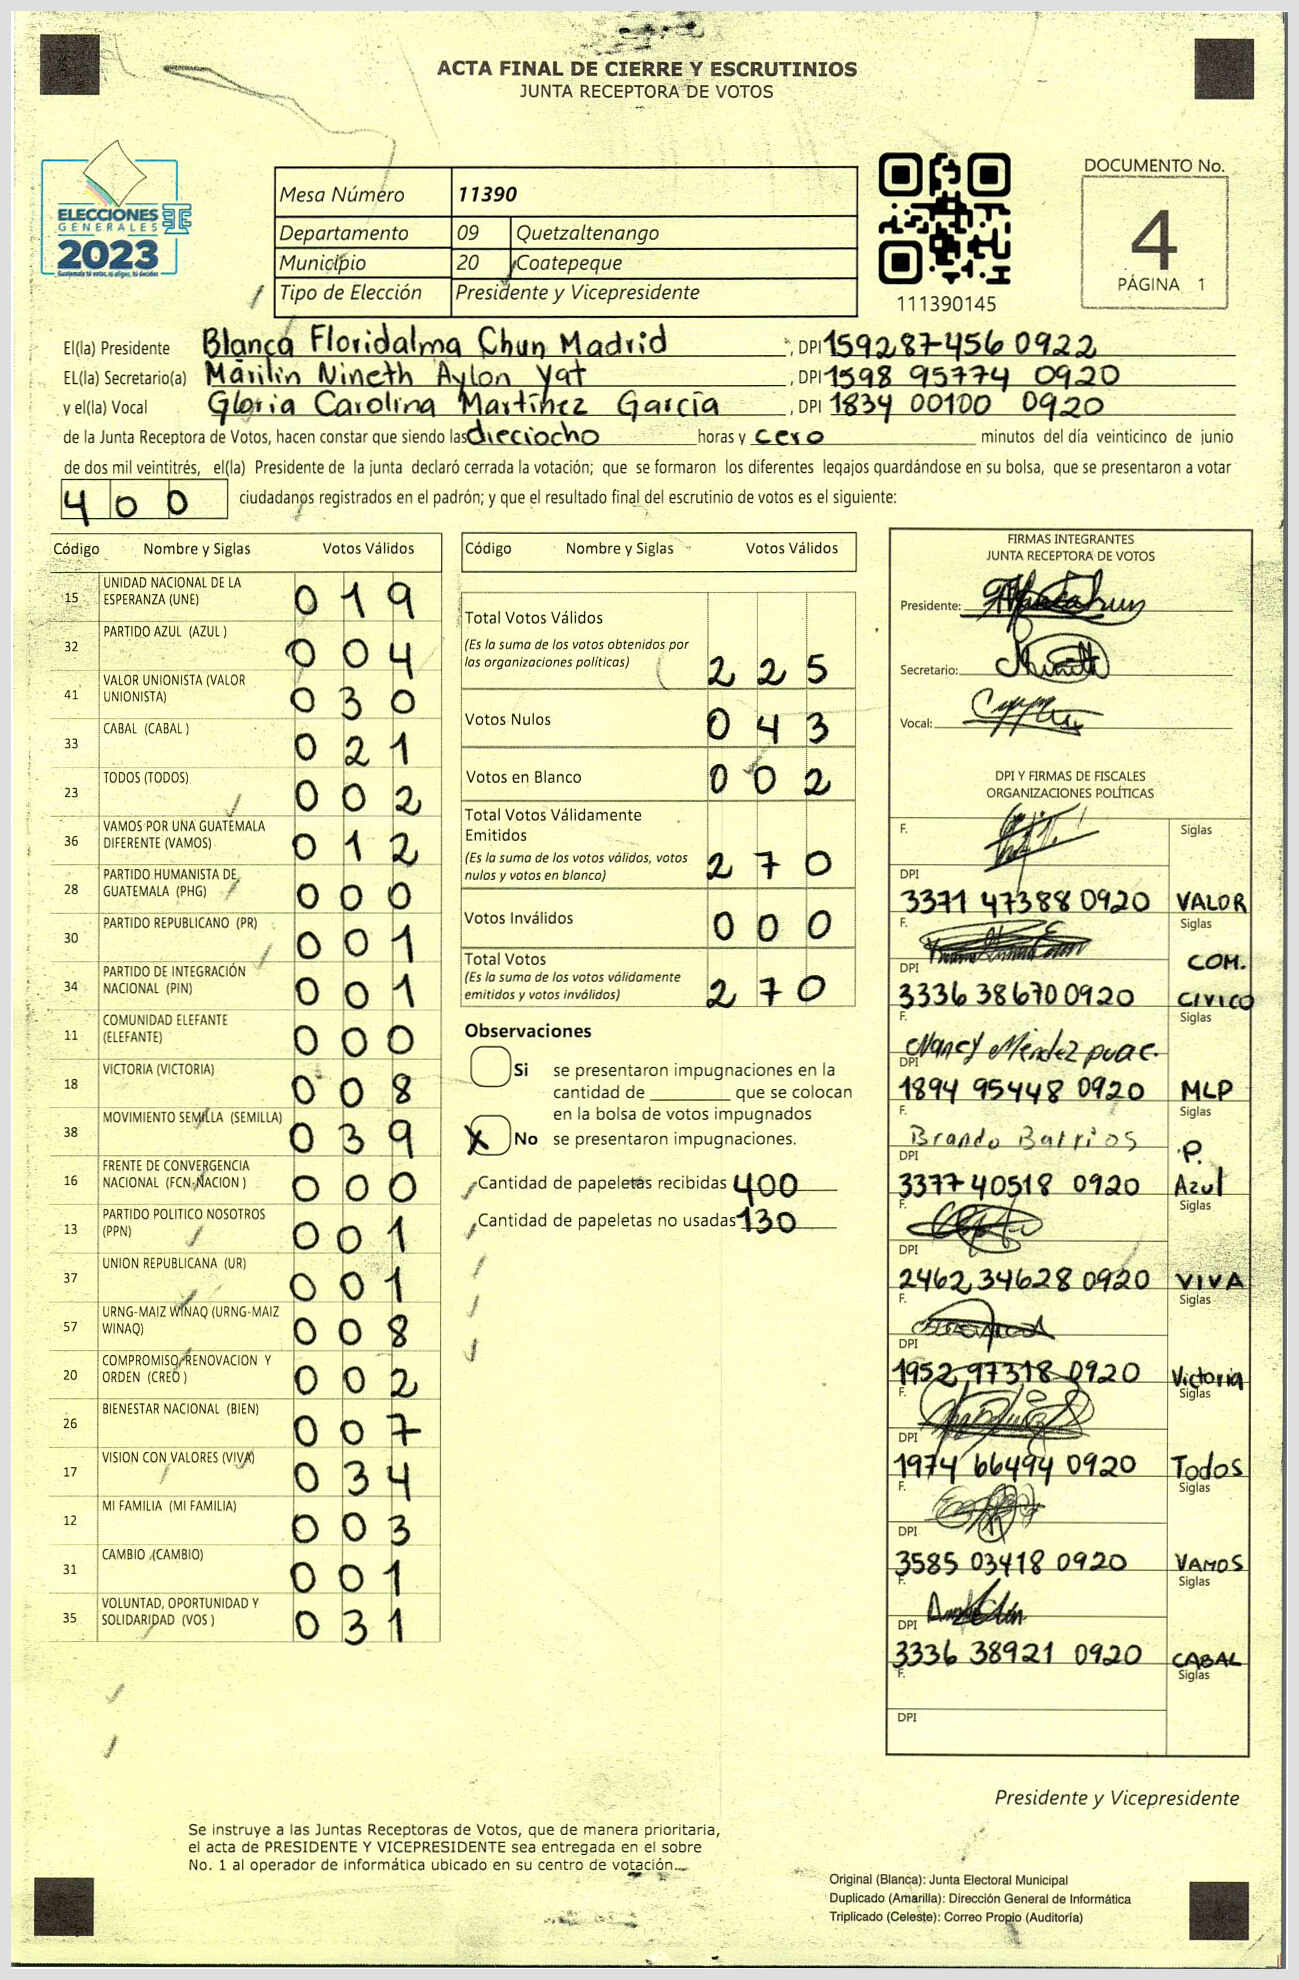 ACTA FINAL DE CIERRE Y ESCRUTINIOS
JUNTA RECEPTORA DE VOTOS
ELECCIONES
GENERALES
2023
Mesa Número 11390
Departamento 09 Quetzaltenango
Municipio 20 Coatepeque
Tipo de Elección Presidente y Vicepresidente
111390145
DOCUMENTO No.
4
PÁGINA 1
El(la) Presidente Blanca Floridalma Chun Madrid, DPI 159287456 0922
EL(la) Secretario(a) Marilin Nineth Aylon Yat, DPI 1598 95774 0920
y el(la) Vocal Gloria Carolina Martínez García, DPI 1834 00100 0920
de la Junta Receptora de Votos, hacen constar que siendo las dieciocho horas y cero minutos del día veinticinco de junio
de dos mil veintitrés, el(la) Presidente de la junta declaró cerrada la votación; que se formaron los diferentes legajos guardándose en su bolsa, que se presentaron a votar
400 ciudadanos registrados en el padrón; y que el resultado final del escrutinio de votos es el siguiente:
Código Nombre y Siglas Votos Válidos
15 UNIDAD NACIONAL DE LA ESPERANZA (UNE) 019
32 PARTIDO AZUL (AZUL ) 004
41 VALOR UNIONISTA (VALOR UNIONISTA) 030
33 CABAL (CABAL ) 021
23 TODOS (TODOS) 002
36 VAMOS POR UNA GUATEMALA DIFERENTE (VAMOS) 012
28 PARTIDO HUMANISTA DE GUATEMALA (PHG) 000
30 PARTIDO REPUBLICANO (PR) 001
34 PARTIDO DE INTEGRACIÓN NACIONAL (PIN) 001
11 COMUNIDAD ELEFANTE (ELEFANTE) 000
18 VICTORIA (VICTORIA) 008
38 MOVIMIENTO SEMILLA (SEMILLA) 039
16 FRENTE DE CONVERGENCIA NACIONAL (FCN-NACION ) 000
13 PARTIDO POLITICO NOSOTROS (PPN) 001
37 UNION REPUBLICANA (UR) 001
57 URNG-MAIZ WINAQ (URNG-MAIZ WINAQ) 008
20 COMPROMISO, RENOVACION Y ORDEN (CREO ) 002
26 BIENESTAR NACIONAL (BIEN) 007
17 VISION CON VALORES (VIVA) 034
12 MI FAMILIA (MI FAMILIA) 003
31 CAMBIO (CAMBIO) 001
35 VOLUNTAD, OPORTUNIDAD Y SOLIDARIDAD (VOS ) 031
Código Nombre y Siglas Votos Válidos
Total Votos Válidos
(Es la suma de los votos obtenidos por
las organizaciones políticas) 225
Votos Nulos 043
Votos en Blanco 002
Total Votos Válidamente
Emitidos
(Es la suma de los votos válidos, votos
nulos y votos en blanco) 270
Votos Inválidos 000
Total Votos
(Es la suma de los votos válidamente
emitidos y votos inválidos) 270
Observaciones
Si se presentaron impugnaciones en la
cantidad de ________ que se colocan
en la bolsa de votos impugnados
X No se presentaron impugnaciones.
Cantidad de papeletas recibidas 400
Cantidad de papeletas no usadas 130
FIRMAS INTEGRANTES
JUNTA RECEPTORA DE VOTOS
Presidente:
Secretario:
Vocal:
DPI Y FIRMAS DE FISCALES
ORGANIZACIONES POLÍTICAS
F. Siglas
DPI 3371 47388 0920 VALOR
F. Siglas
DPI 3336 38670 0920 COM. CIVICO
F. Nancy Méndez Siglas
DPI 1894 95448 0920 MLP
F. Brando Barrios Siglas
DPI 3377 40518 0920 P. Azul
F. Siglas
DPI 2462 34628 0920 VIVA
F. Siglas
DPI 1952 97318 0920 Victoria
F. Siglas
DPI 1974 66494 0920 Todos
F. Siglas
DPI 3585 03418 0920 VAMOS
F. Siglas
DPI 3336 38921 0920 CABAL
F. Siglas
DPI
Presidente y Vicepresidente
Se instruye a las Juntas Receptoras de Votos, que de manera prioritaria,
el acta de PRESIDENTE Y VICEPRESIDENTE sea entregada en el sobre
No. 1 al operador de informática ubicado en su centro de votación.
Original (Blanca): Junta Electoral Municipal
Duplicado (Amarilla): Dirección General de Informática
Triplicado (Celeste): Correo Propio (Auditoría)